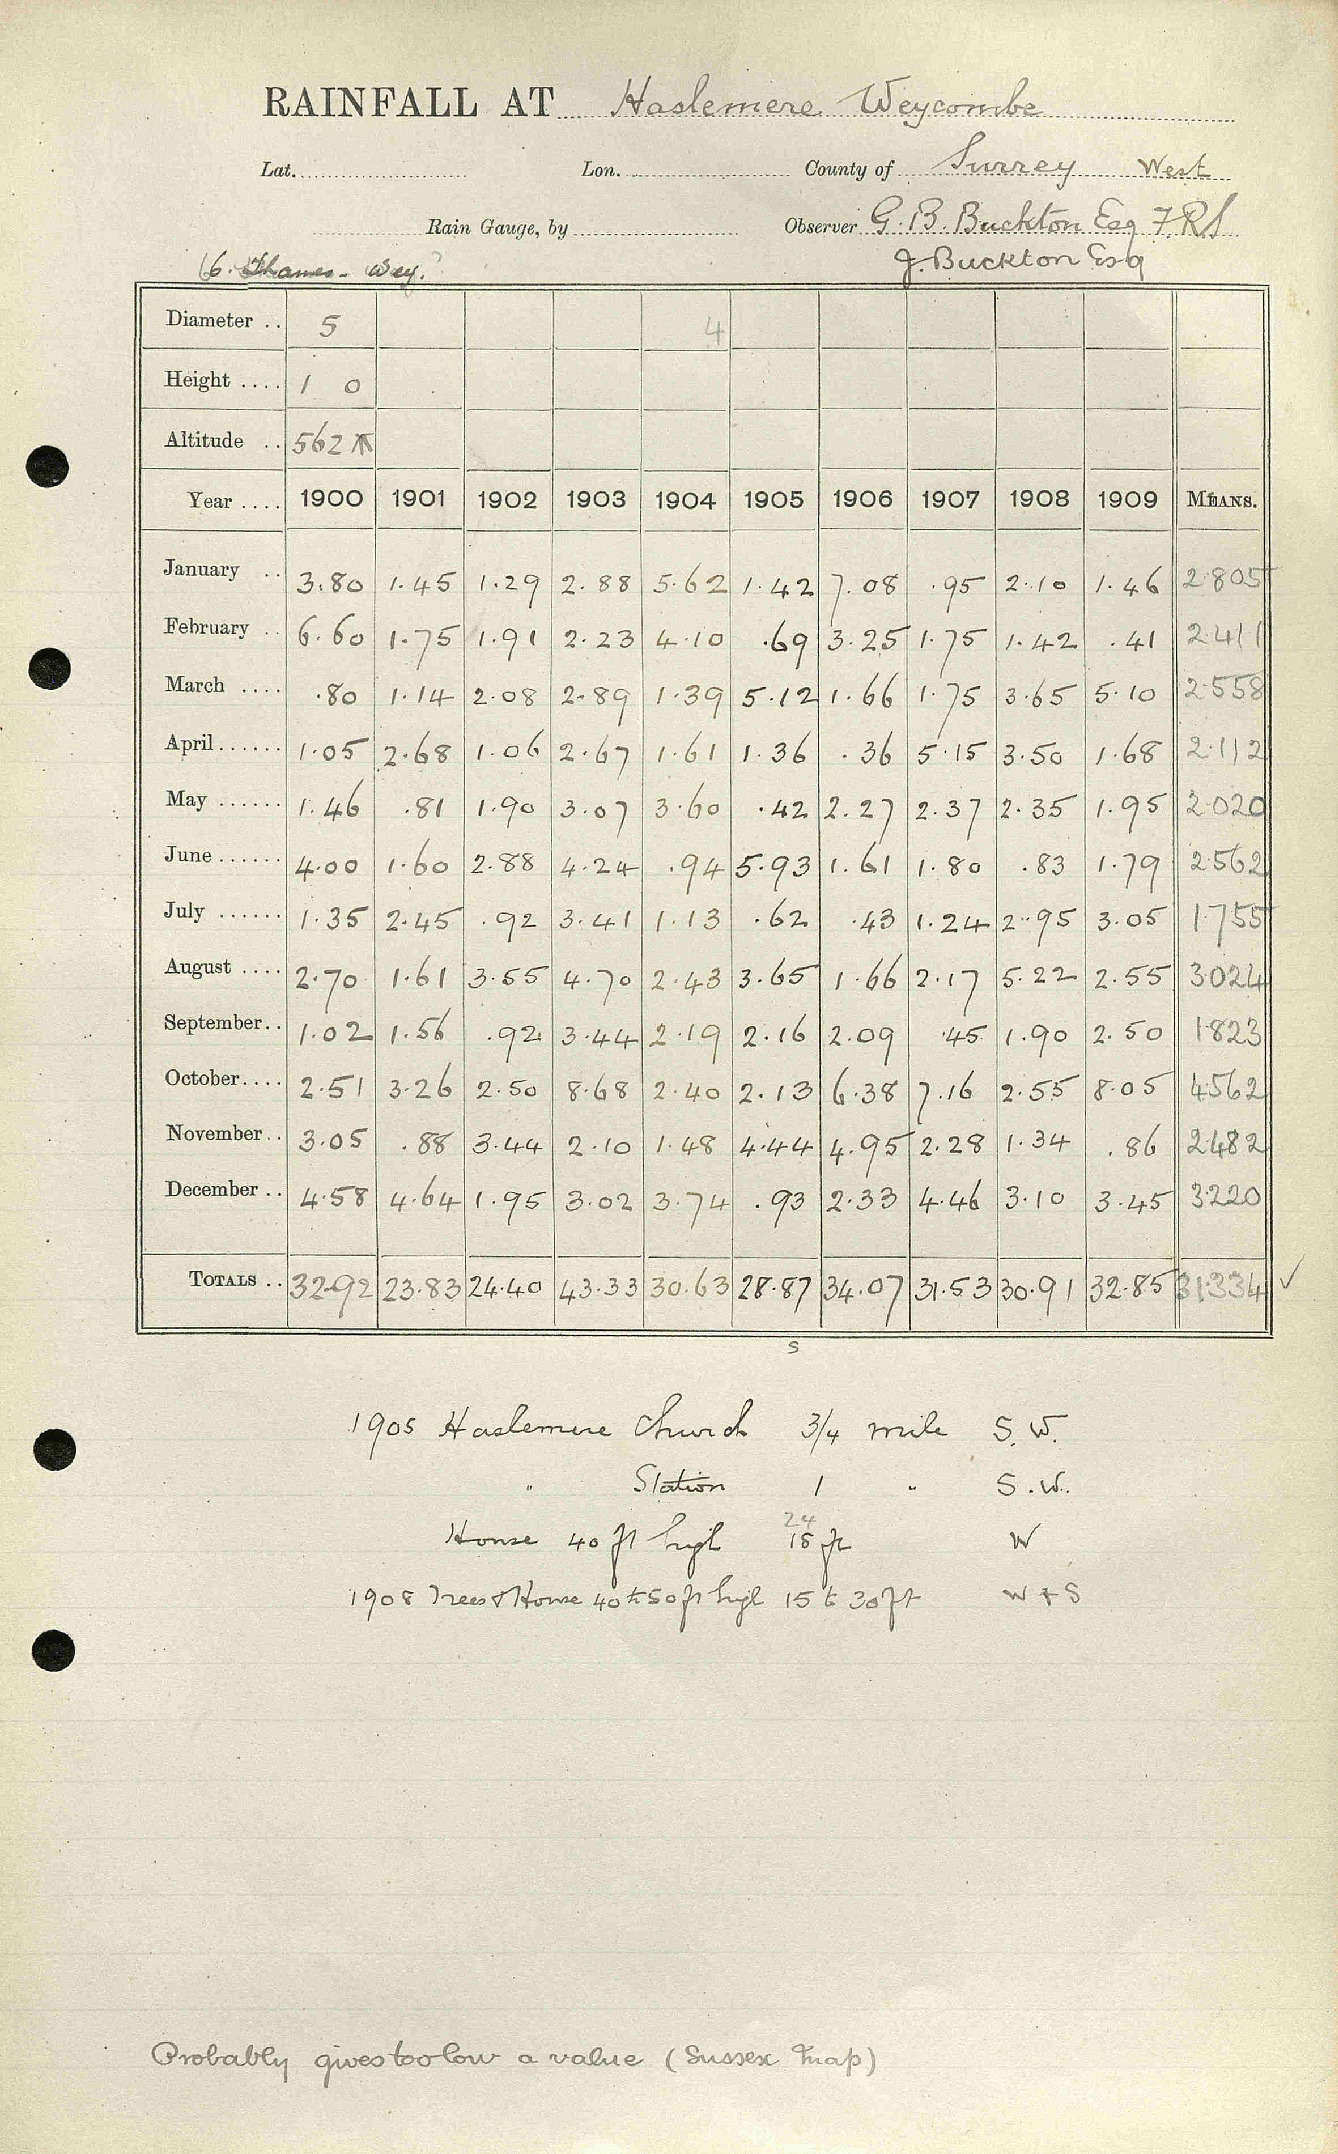 RAINFALL AT Haslemere Weycombe
Lat. Lon. County of Surrey West
Rain Gauge, by Observer G. B. Buckton Esq F.R.S
6. Thames - Wey. J. Buckton Esq
Diameter .. 5 4
Height .... 1 0
Altitude .. 562
Year .... 1900 1901 1902 1903 1904 1905 1906 1907 1908 1909 MEANS.
January .. 3.80 1.45 1.29 2.88 5.62 1.42 7.08 .95 2.10 1.46 2.805
February .. 6.60 1.75 1.91 2.23 4.10 .69 3.25 1.75 1.42 .41 2.411
March .... .80 1.14 2.08 2.89 1.39 5.12 1.66 1.75 3.65 5.10 2.558
April...... 1.05 2.68 1.06 2.67 1.61 1.36 .36 5.15 3.50 1.68 2.112
May ...... 1.46 .81 1.90 3.07 3.60 .42 2.27 2.37 2.35 1.95 2.020
June ...... 4.00 1.60 2.88 4.24 .94 5.93 1.61 1.80 .83 1.79 2.562
July ...... 1.35 2.45 .92 3.41 1.13 .62 .43 1.24 2.95 3.05 1.755
August .... 2.70 1.61 3.55 4.70 2.43 3.65 1.66 2.17 5.22 2.55 3024
September.. 1.02 1.56 .92 3.44 2.19 2.16 2.09 .45 1.90 2.50 1823
October.... 2.51 3.26 2.50 8.68 2.40 2.13 6.38 7.16 2.55 8.05 4562
November.. 3.05 .88 3.44 2.10 1.48 4.44 4.95 2.28 1.34 .86 2482
December .. 4.58 4.64 1.95 3.02 3.74 .93 2.33 4.46 3.10 3.45 3220
TOTALS .. 32.92 23.83 24.40 43.33 30.63 28.87 34.07 31.53 30.91 32.85 31.334 ✓
s
1905 Haslemere Church 3/4 mile S.W.
" Station 1 " S.W.
24
House 40 ft high 15 ft W
1908 Trees & House 40 to 50 ft high 15 to 30 ft W + S
Probably gives too low a value (Sussex map)